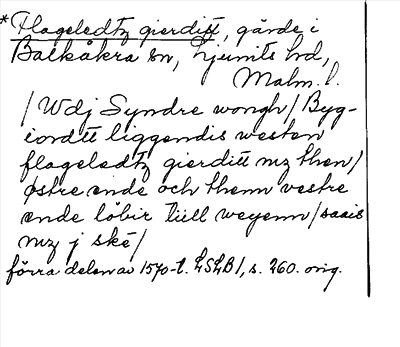 *Flageledtz gierditt, gärde i
Balkåkra sn, Ljunits hd,
Malm. l.
/Wdj Syndre wongh/ Byg-
iordtt liggendis westen
flageledtz gierditt mz then/
østre ende och thenn vestre
ende löbir tiill weyenn/saais
mz j ské/
förra delen av 1570-t. LSLB1, s. 260. orig.